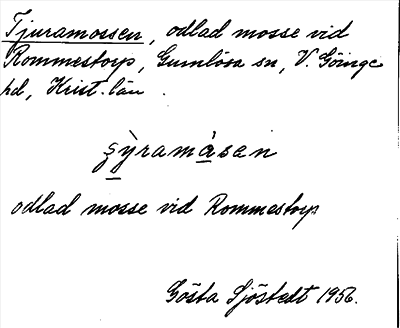 Tjuramossen, odlad mosse vid
Rommestorp, Gumlösa sn, V. Göinge
hd, Krist. län.
ʂỳramàsen
odlad mosse vid Rommestorp
Gösta Sjöstedt 1956.